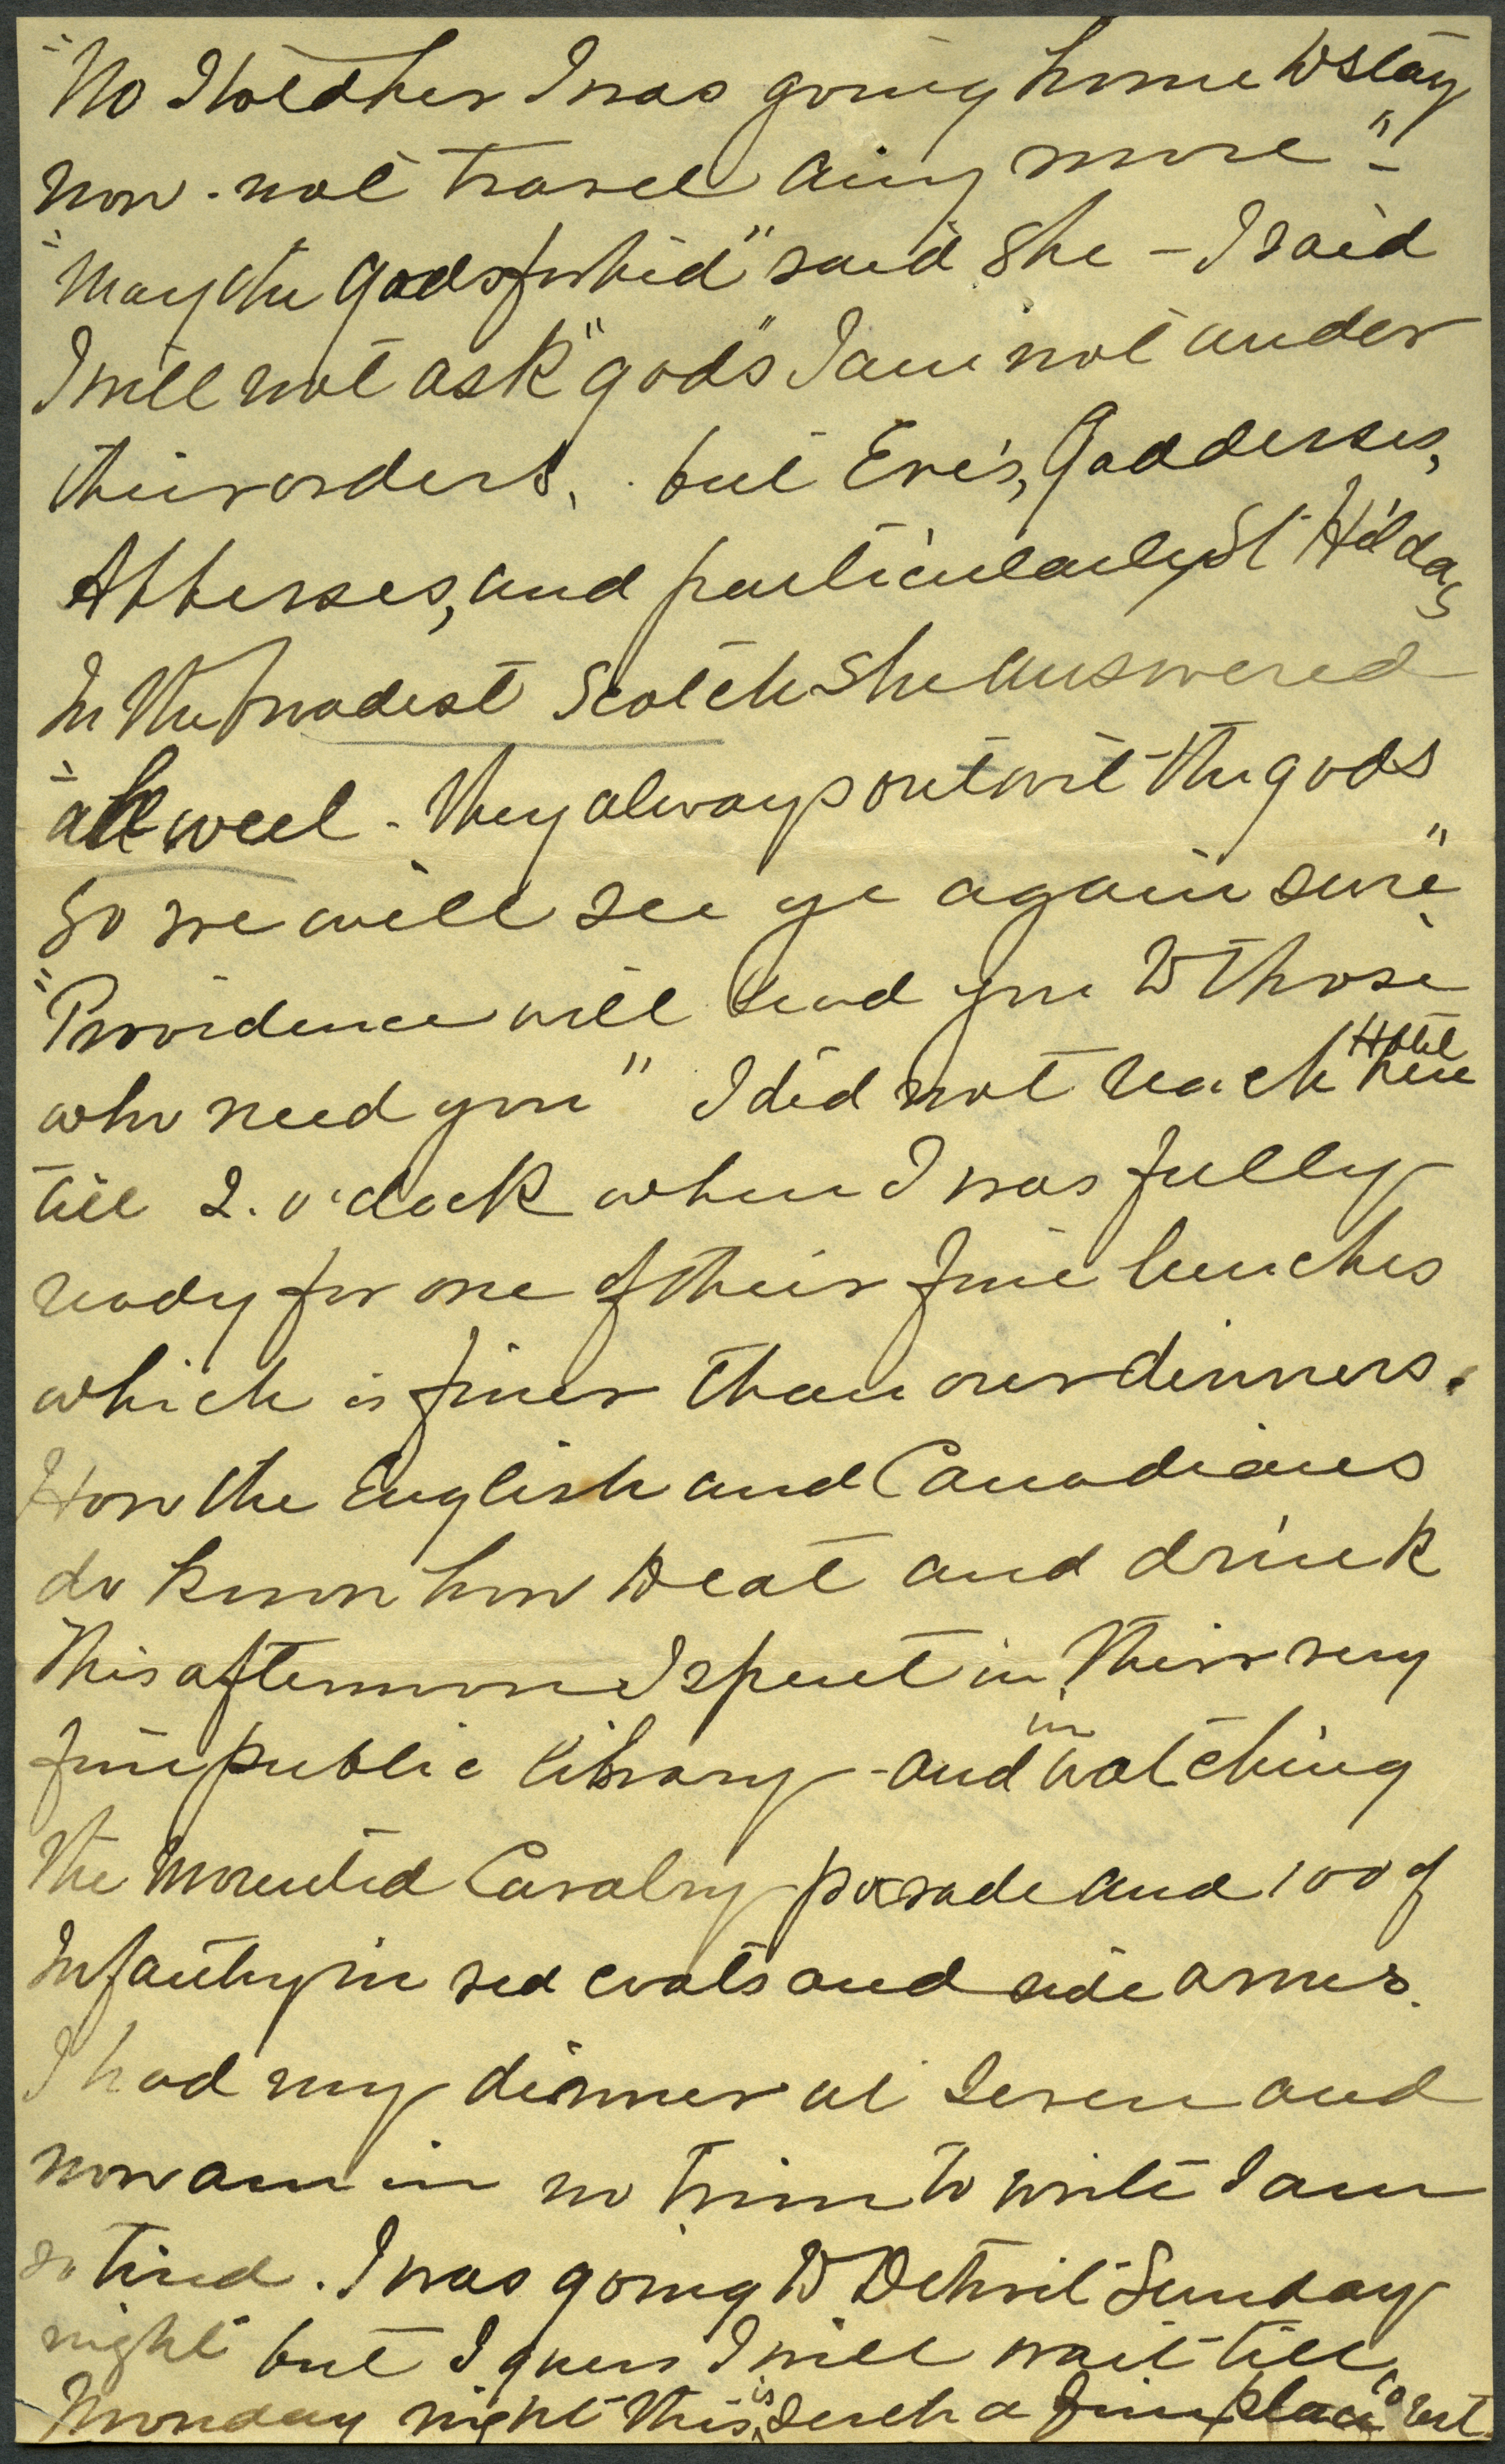 "No I told her I was going home to stay
now - not travel any more" -
"May the gods forbid" said she - I said
I will not ask "gods" I am not under
their orders, but Eve's, Goddesses,
Abbesses, and particularly St Hildas
In the broadest Scotch she answered
"ah weel - they always outwit the gods
so we will see ye again sure"
"Providence will send you to those
who need you" I did not reach Hotel here
till 2. o'clock when I was fully
ready for one of their fine lunches
which is finer than our dinners.
How the English and Canadians
do know how to eat and drink
This afternoon I spent in their very
fine public library - and in watching
the Mounted Cavalry parade and 100 of
Infantry in red coats and side arms.
I had my dinner at seven and
now am in no trim to write I am
so tired. I was going to Detroit Sunday
night but I guess I will wait till
Monday night this is such a fine place to rest